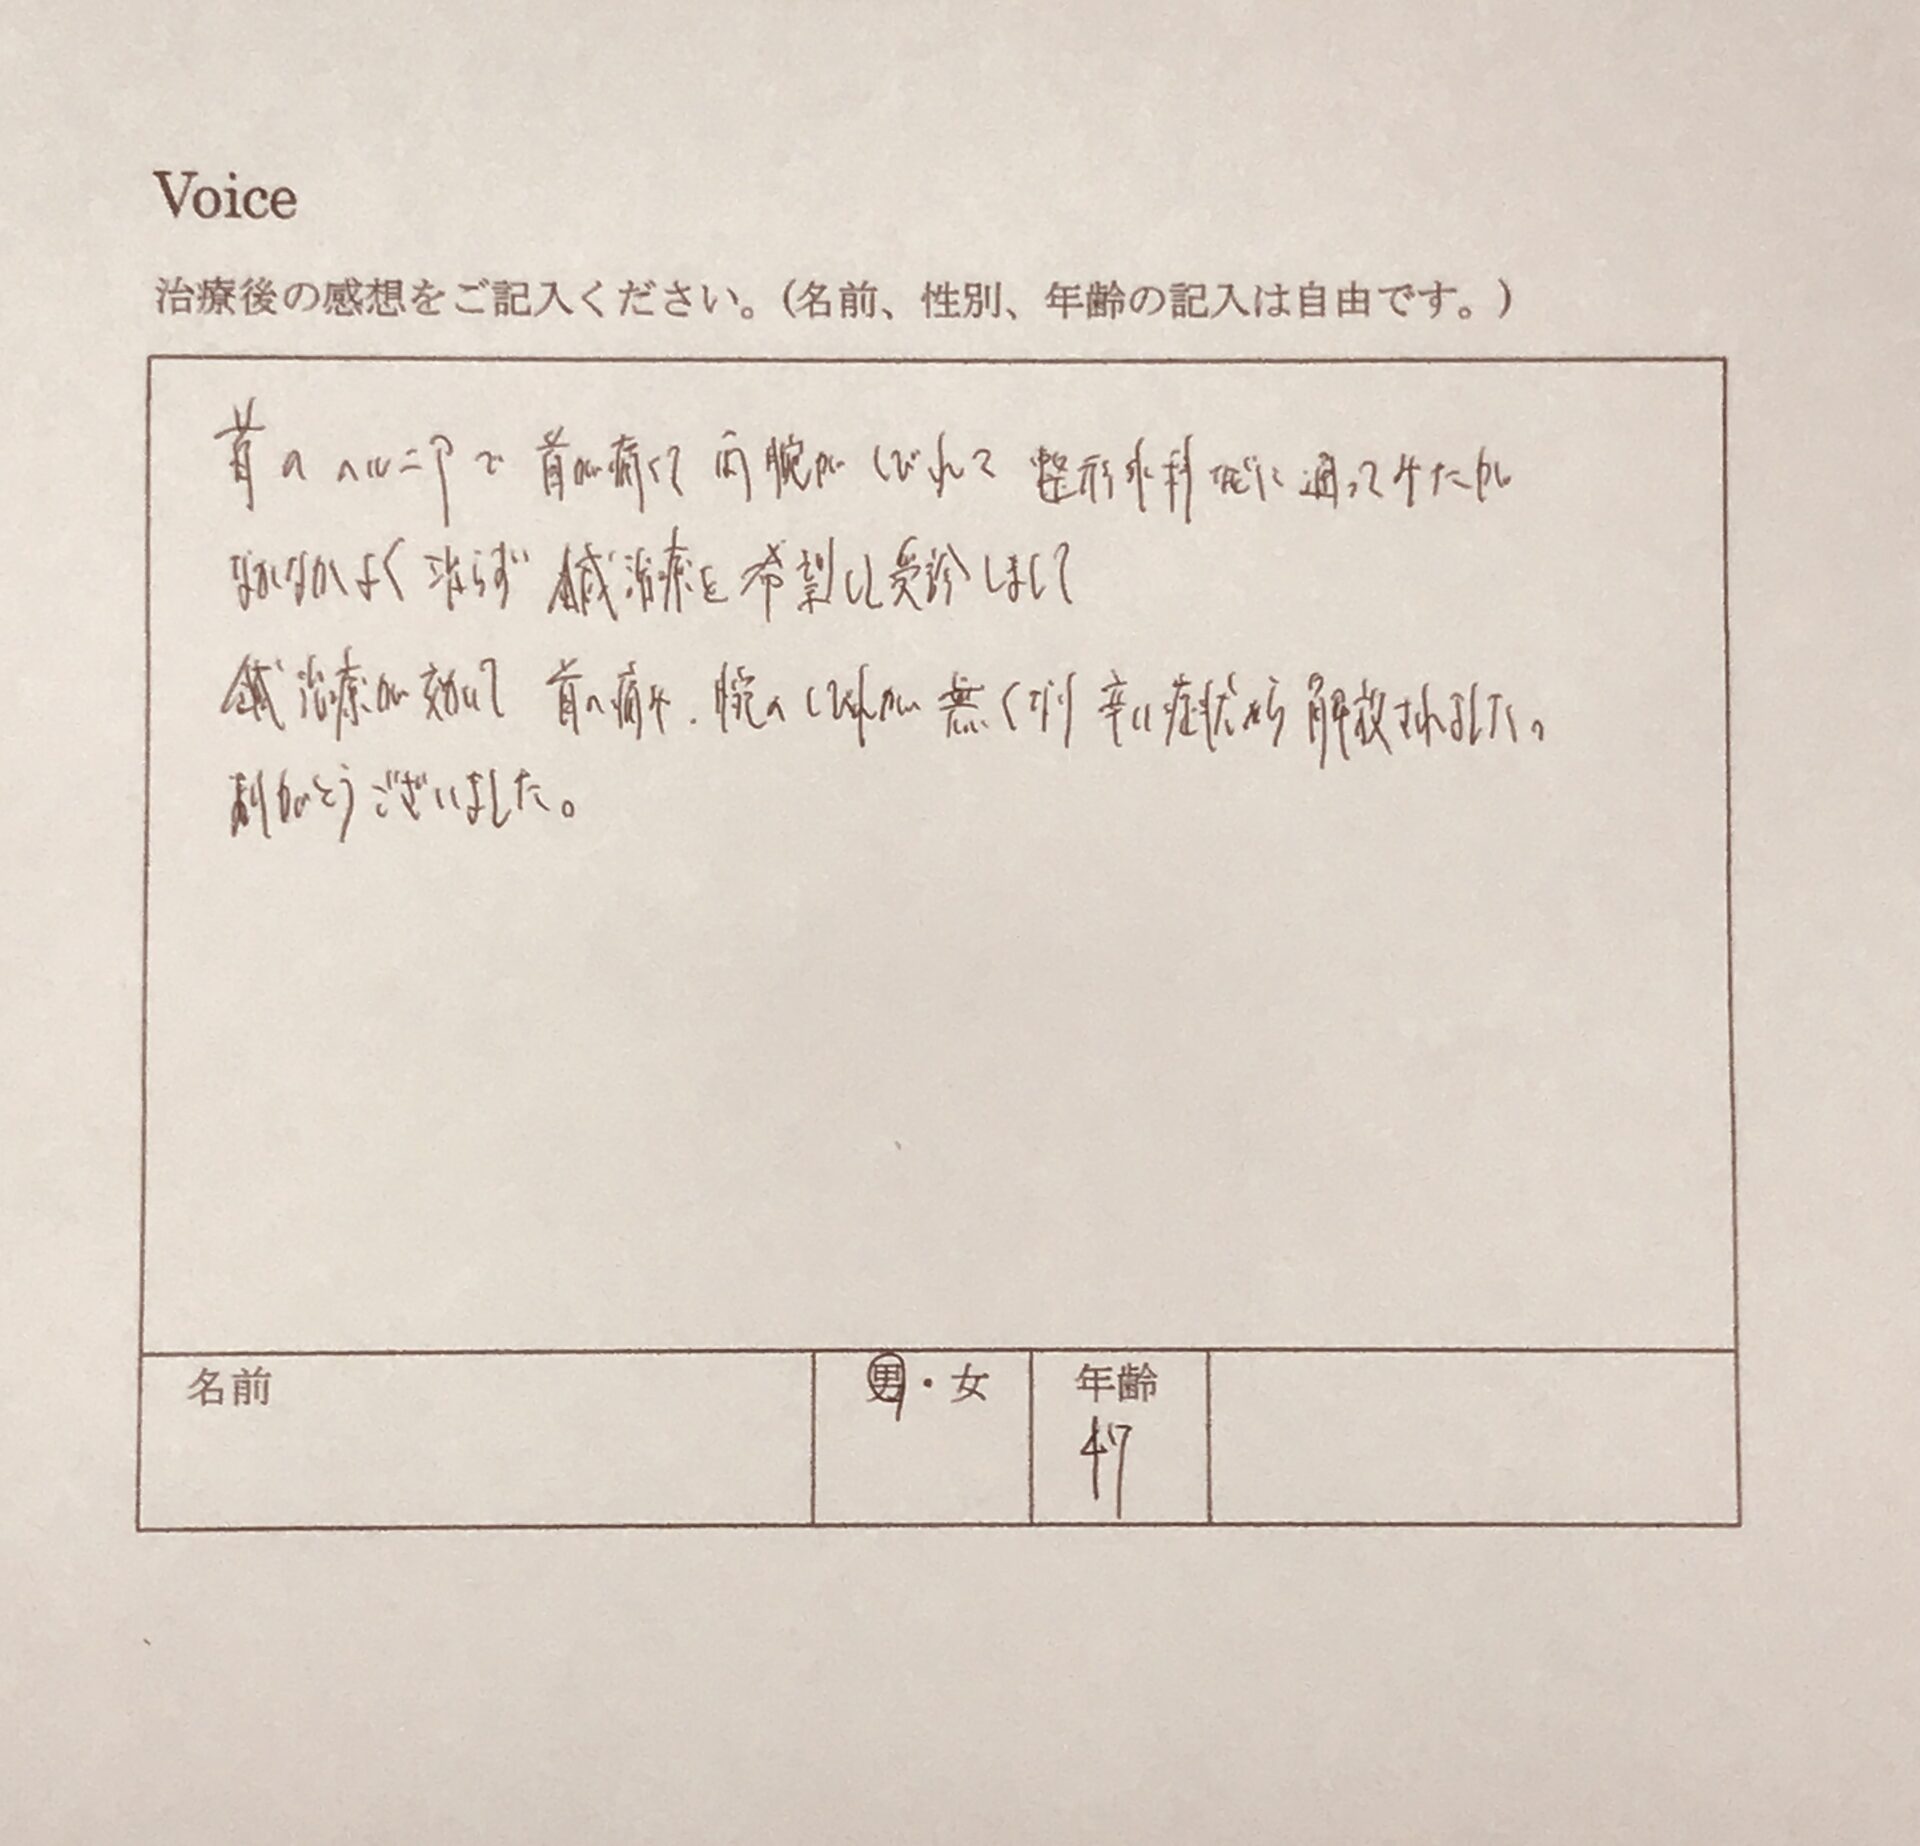 Voice
治療後の感想をご記入ください。（名前、性別、年齢の記入は自由です。）
首のヘルニアで首が痛くて両腕がしびれて整形外科などに通ってみたが
なかなかよく治らず鍼治療を希望して受診しまして
鍼治療が効いて首の痛み、腕のしびれが無くなり辛い症状から解放されました。
ありがとうございました。
名前 男・女 年齢
47